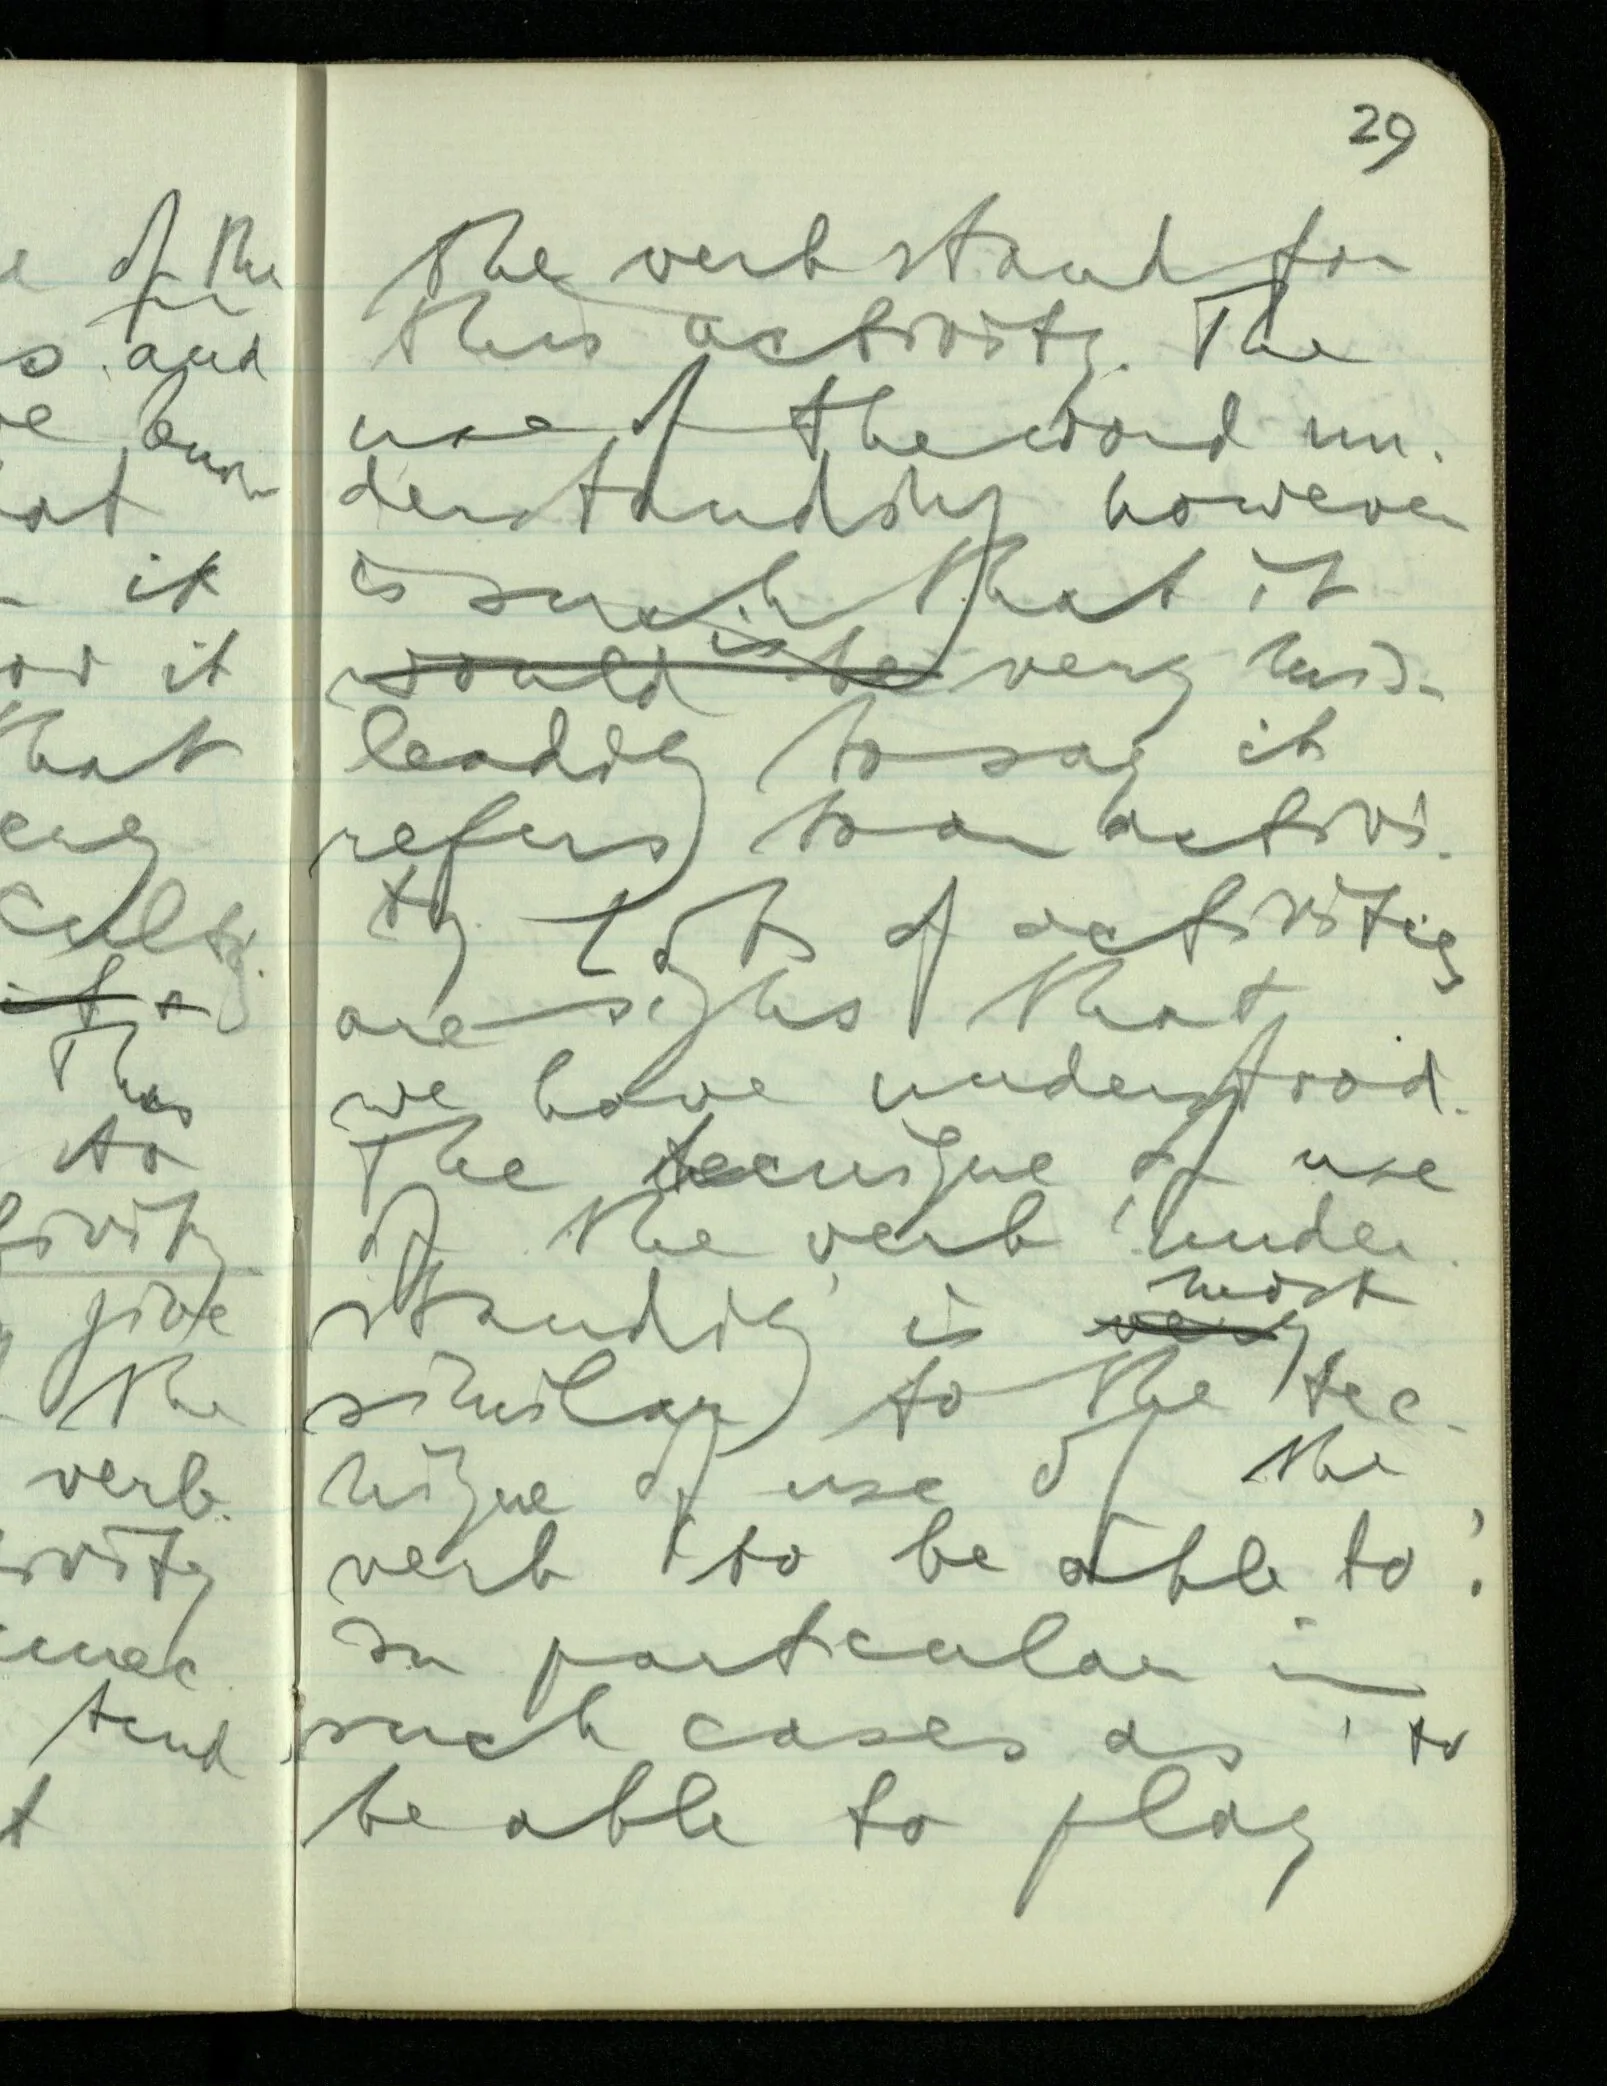 29
e of the
s and
ve
at
it
it
that
to
give
the
verb
tend
t
the verb stand for
this activity. The
use of the word un-
derstanding however
is such that it
would be is very mis-
leading to say it
refers to an activi-
ty. Lots of activities
are signs that
we have understood.
The tecnique of use
of the verb 'under-
standing' is very most
similar to the tec-
nique of use of the
verb 'to be able to'.
In particular in
such cases as 'to
be able to play